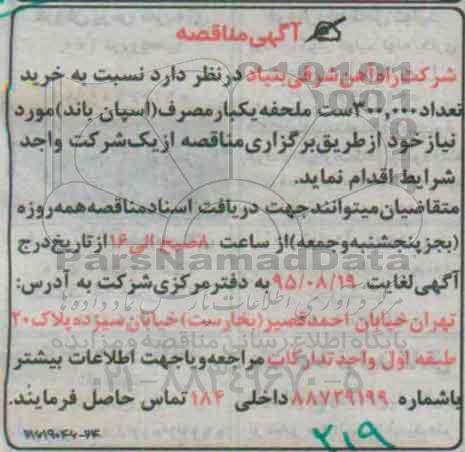 آگهی مناقصه
شرکت راه آهن شرقی بنیاد در نظر دارد نسبت به خرید
تعداد ۳۰۰,۰۰۰ ست ملحفه یکبار مصرف (اسپان باند) مورد
نیاز خود از طریق برگزاری مناقصه از یک شرکت واجد
شرایط اقدام نماید.
متقاضیان میتوانند جهت دریافت اسناد مناقصه همه روزه
(بجز پنجشنبه و جمعه) از ساعت ۸ صبح الی ۱۶ از تاریخ درج
ParsNamadData
آگهی لغایت ۹۵/۰۸/۱۹ به دفتر مرکزی شرکت به آدرس:
تهران خیابان احمد قصیر (بخارست) خیابان سیزده پلاک ۲۰
پایگاه اطلاع رسانی مناقصه و مزایده
طبقه اول واحد تدارکات مراجعه و یا جهت اطلاعات بیشتر
باشماره ۸۸۷۳۹۱۹۹ داخلی ۱۸۴ تماس حاصل فرمایند.
۲۱۹